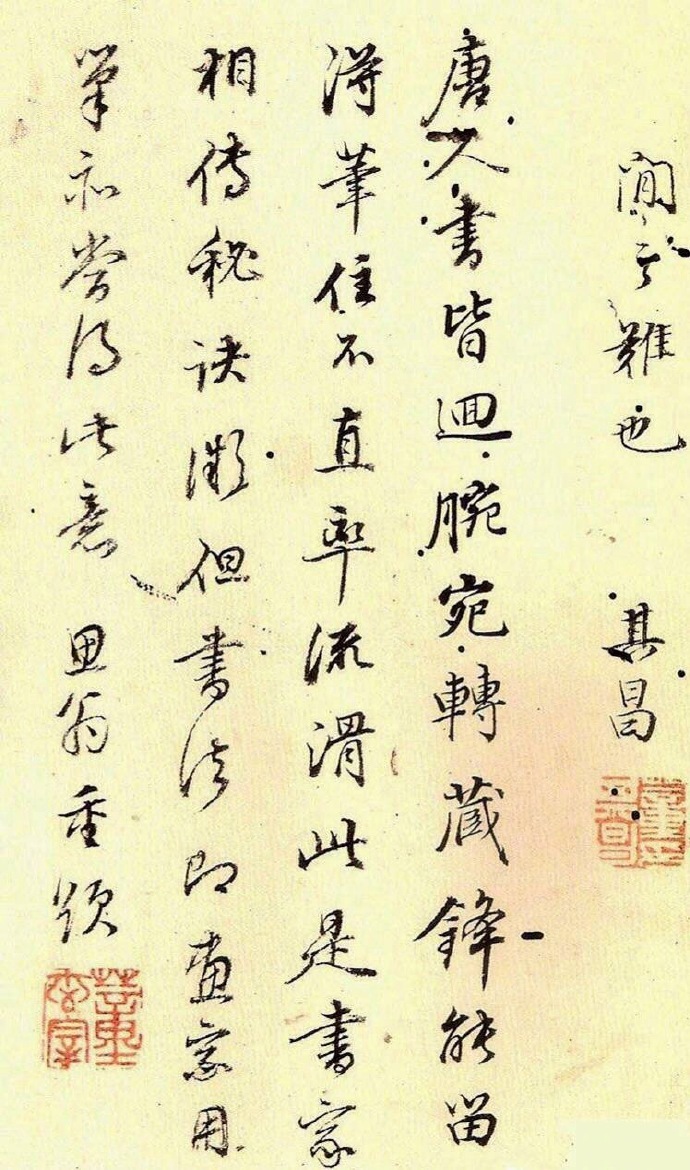 閒難也 其昌
唐人書皆迴腕宛轉藏鋒能留
得筆住不直率流滑此是書家
相傳秘訣微但書法即畫家用
筆亦當得此意 思翁重題